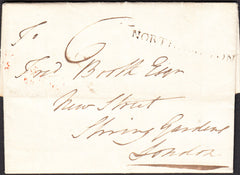 To
6
NORTHAMPTON
Fredk Booth Esqr
New Street
Spring Gardens
London